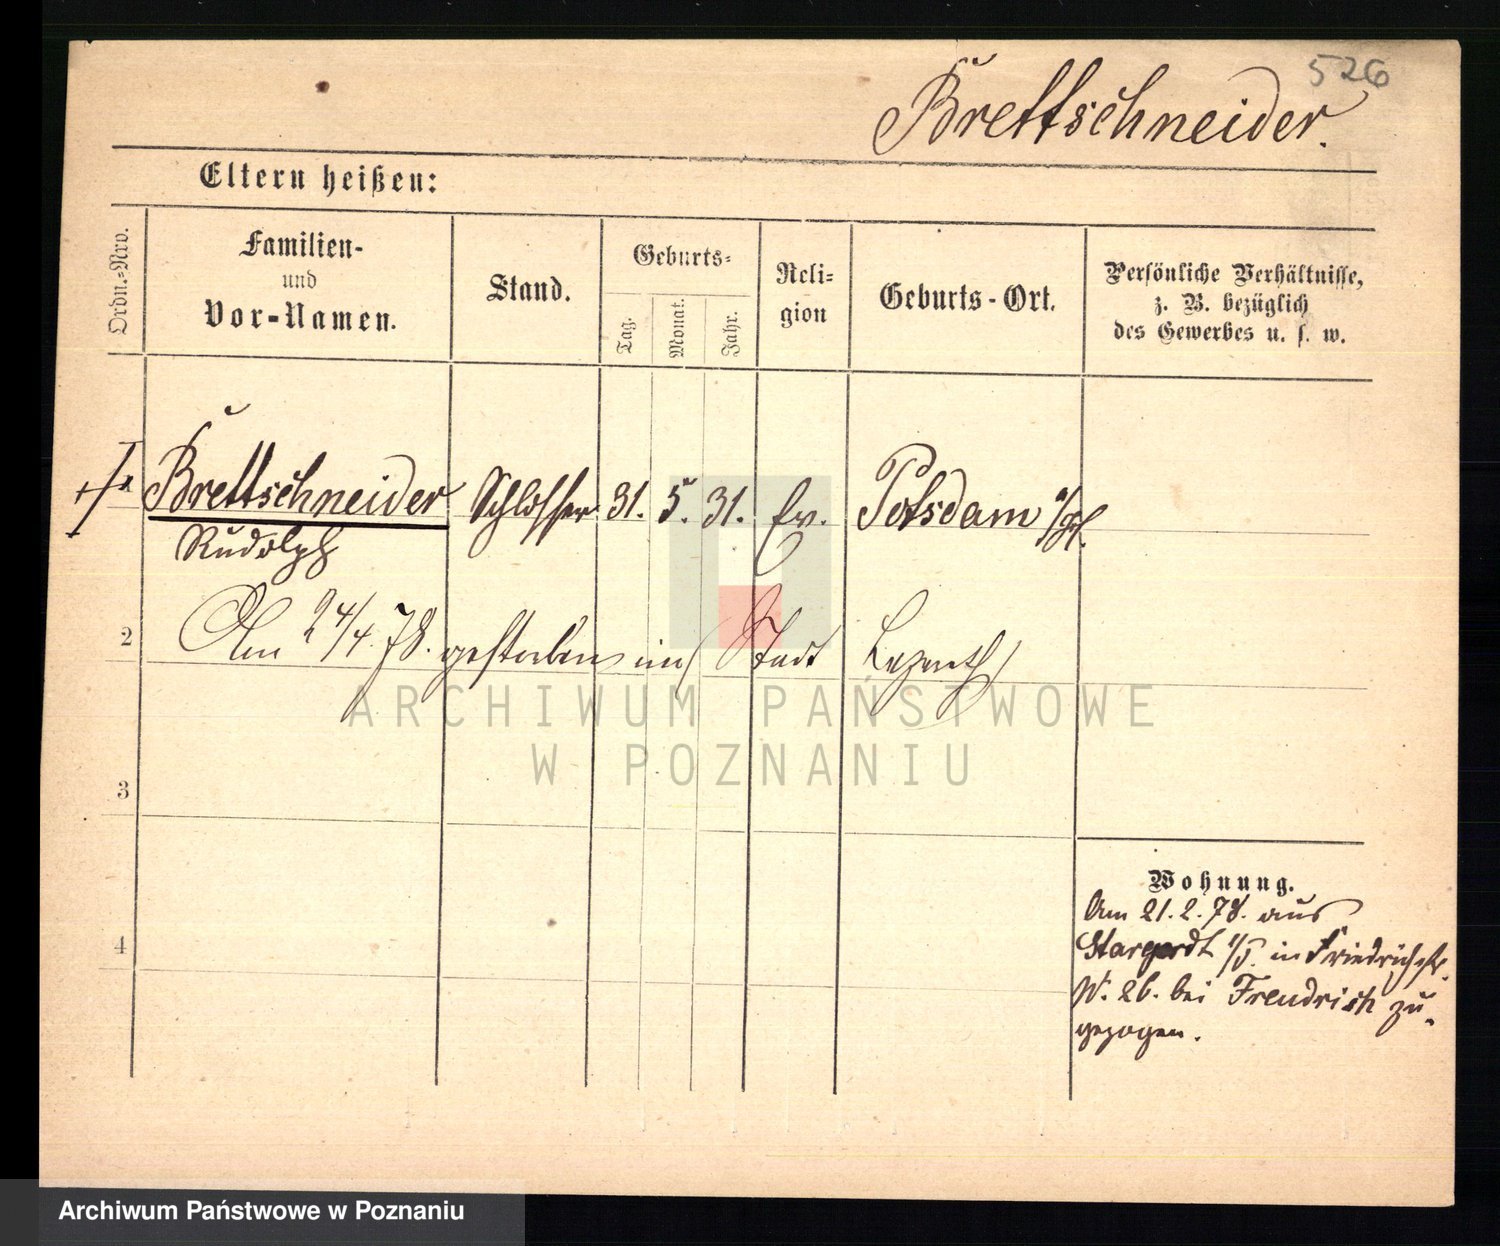 526
Brettschneider.
Eltern heißen:
Ordn.=Nro.
Familien-
und
Vor-Namen.
Stand.
Geburts=
Tag.
Monat.
Jahr.
Reli=
gion
Geburts-Ort.
Persönliche Verhältnisse,
z. B. bezüglich
des Gewerbes u. s. w.
Brettschneider Schlosser 31. 5. 31. Ev. Potsdam
Rudolph
2 Am 24/4. 78. gestorben im Stadt Lazareth
3
4
Wohnung.
Am 21. 2. 78. aus
Stargardt in Friedrichstr.
N. 26. bei zu-
gezogen.
ARCHIWUM PAŃSTWOWE
W POZNANIU
Archiwum Państwowe w Poznaniu